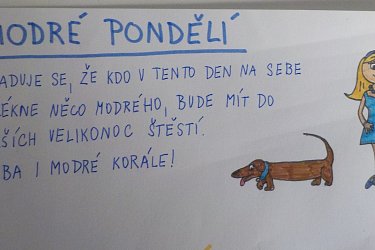 MODRÉ PONDĚLÍ
ADUJE SE, ŽE KDO V TENTO DEN NA SEBE
LÉKNE NĚCO MODRÉHO, BUDE MÍT DO
ŠÍCH VELIKONOC ŠTĚSTÍ.
BA I MODRÉ KORÁLE!